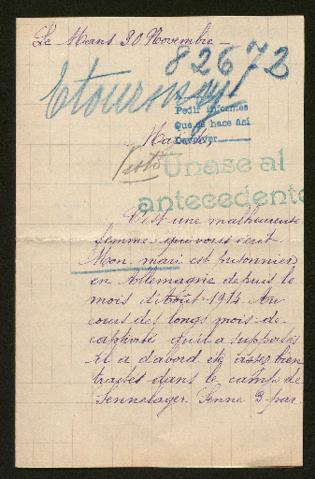 Le Mans 30 Novembre
82672
Pedir informes
Que se hace asi
Devolver
Majesté,
Visto
Únase al
antecedente
C'est une malheureuse
femme qui vous écrit
Mon mari est prisonnier
en Allemagne depuis le
mois d'Août 1914. Au
cours des longs mois de
captivité qu'il a supportés
il a d'abord été assez bien
traités dans le camp de
Sennelager Senne 3 par